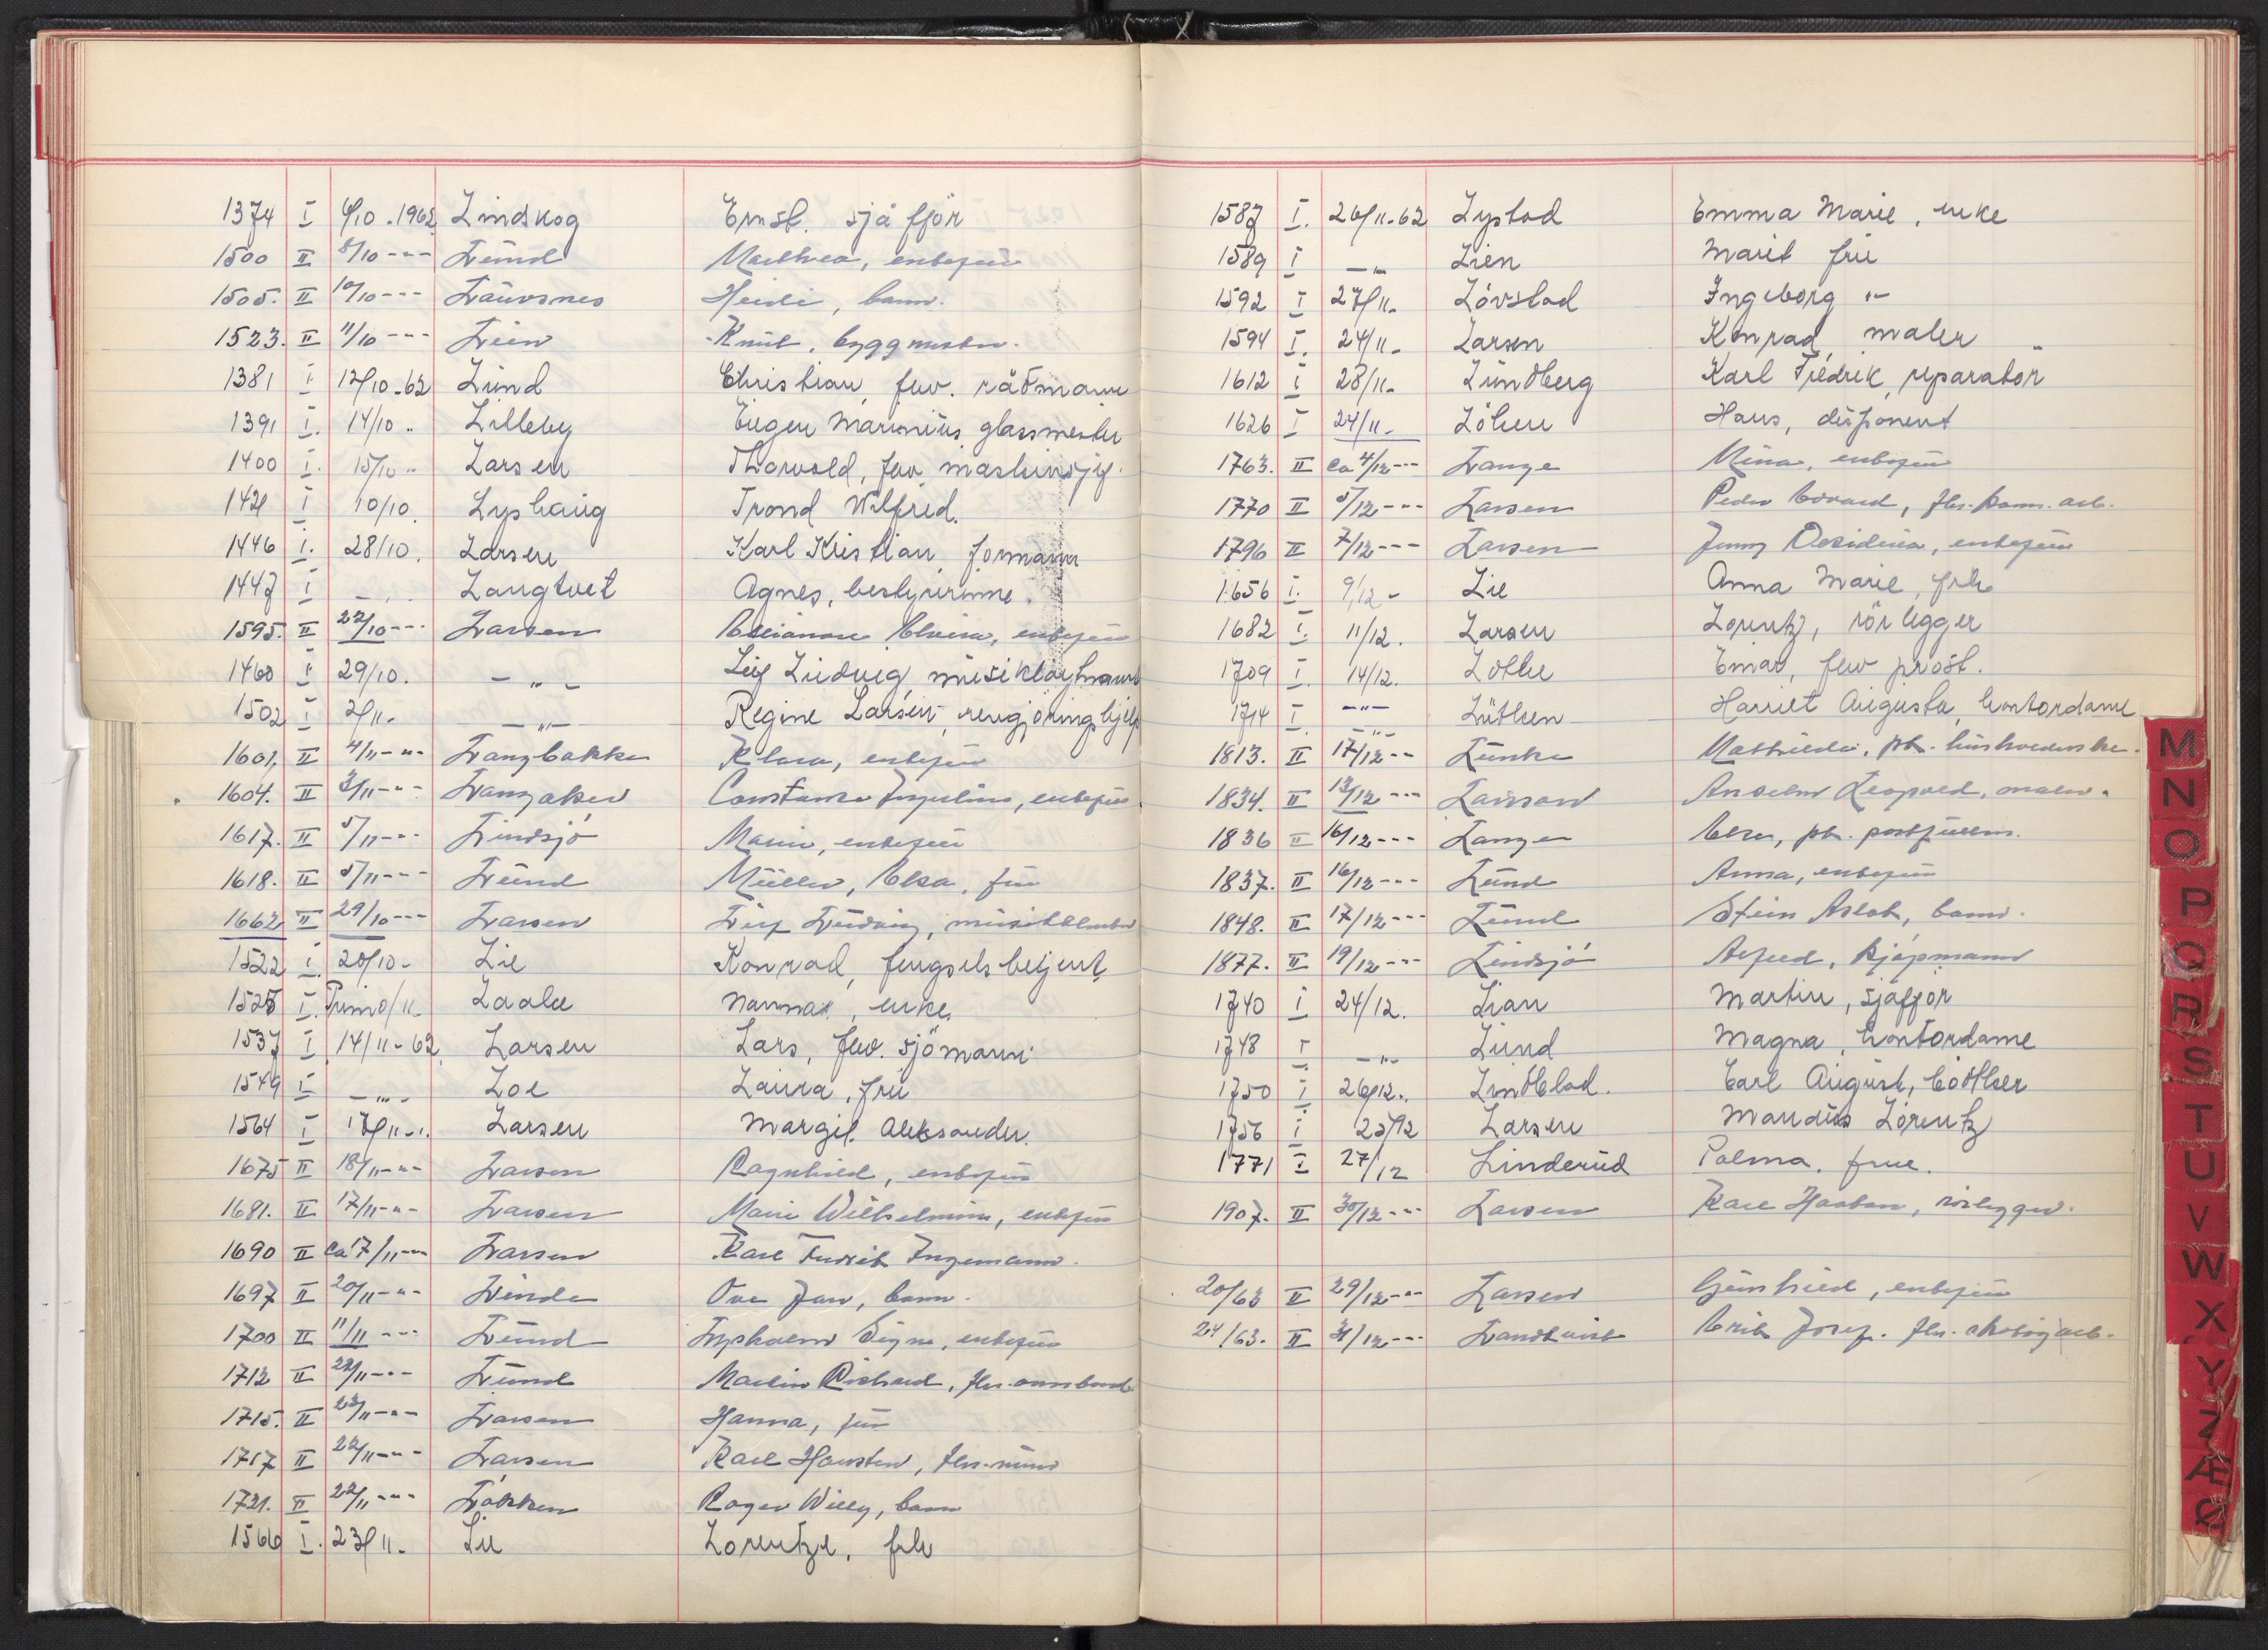 1374 I 6/10.1962 Lindskog Ernst. sjåffør
1500 II 8/10 --- Lund Mathea, enkefru
1505. II 10/10 --- Laursnes Heidi, barn.
1523. II 11/10 --- Lien Knut, byggmester.
1381 I 12/10-62 Lund Christian, fhv. rådmann
1391 I. 14/10 " Lilleby Eugen Marinius, glassmester
1400 I. 15/10 " Larsen Thorvald, fhv. maskinsjef.
1421 I 10/10. Lyshaug Trond Wilfred.
1446 I. 28/10. Larsen Karl Kristian, formann
1447 I - " - Langtvet Agnes, bestyrerinne.
1595. II 22/10 --- Larsen enkefru
1460 I 29/10. - " - Leif Ludvig, musikløytnant
1502 I 2/11- - " - Regine Larsen, rengjøringshjelp
1601, II 4/11-"- Langbakke Klara, enkefru
1604. II 3/11-"- Langaker Constance Ingeline, enkefru.
1617. II 5/11-"- Lindsjø Marie, enkefru
1618. II 5/11--- Lund Müller, Elsa, fru
1662 II 29/10--- Larsen Leif Ludvig,
1522 I. 20/10- Lie Konrad, fengselsbetjent
1525 I. Primo/11- Laake Nanna, enke.
1537 I 14/11-62 Larsen Lars, fhv. sjømann.
1549 I - " - Loe Laura, fru
1564 I 17/11-". Larsen Margit Aleksander.
1675 II 18/11-"- Larsen Ragnhild, enkefru
1681. II 17/11-"- Larsen Marie Wilhelmine, enkefru
1690 II ca 17/11-"- Larsen Karl Fredrik Ingemann.
1697 II 20/11-"- Linde Ove Jan, barn.
1700 II 11/11 --- Lund Lysholm Signe, enkefru
1712 II 22/11--- Lund Martin Richard, fhv.
1715. II 23/11-"- Larsen Hanna, fru
1717 II 22/11-"- Larsen Karl Hansten, fhv. murer
1721. II 22/11-"- Løkken Roger Willy, barn
1566 I. 23/11- Lie Lorentze, frk
1587 I. 26/11-62 Lystad Emma Marie, enke
1589 I - " - Lien Marit fru
1592 I 27/11- Løvstad Ingeborg "-
1594 I. 24/11- Larsen Konrad, maler
1612 I 28/11- Lundberg Karl Fredrik, reparatør
1626 I 24/11- Løken Hans, disponent
1763. II ca 4/12--- Lange Mina, enkefru
1770 II 5/12--- Larsen Peder Edvard, fhv. komm. arb.
1796 II 7/12--- Larsen Jenny Desideria, enkefru
1656 I. 9/12- Lie Anna Marie, frk
1682 I. 11/12. Larsen Lorentz, rørlegger
1709 I. 14/12. Lothe Einar, fhv prost.
1714 I -"- Lüthen Harriet Augusta, kontordame
1813. II 17/12-- Lunke Mathilde, pb. husholderske.
1834. II 13/12 --- Larsson Anselm Leopold, maler.
1836 II 16/12--- Lange Elsa, pb. postfullm.
1837. II 16/12--- Lund Anna, enkefru
1848. II 17/12--- Lund Stein Aslak, barn.
1877. II 19/12--- Lindsjø Alfred, kjøpmann
1740 I 24/12. Lian Martin, sjåffør
1748 I - " - Lund Magna, kontordame
1750 I 26/12. Lindblad. Carl August, bødtker
1756 I 25/12 Larsen Mandius Lorentz
1771 I 27/12 Linderud Palma. frue.
1907. II 30/12--- Larsen Karl Haakon, rørlegger.
20/63 II 29/12-"- Larsen Gunhild, enkefru
24/63. II 31/12--- Landkvist Erik Josef. fhv. skotøyarb.
M
N
O
P
Q
R
S
T
U
V
W
X
Y
Z
Æ
Ø